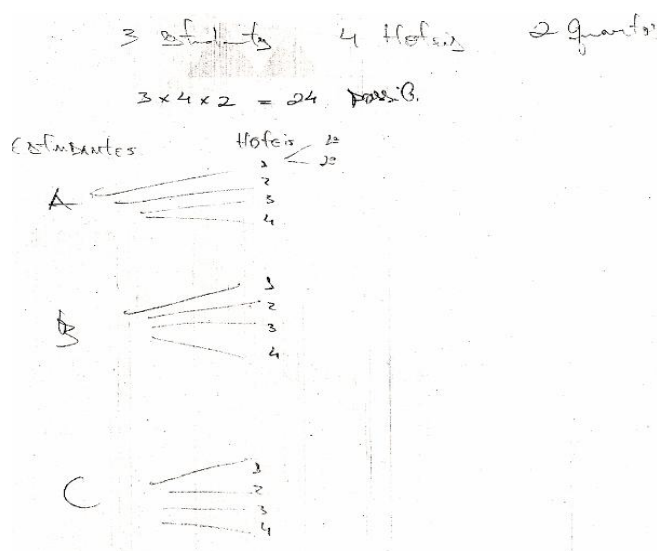 3 estudantes 4 Hoteis 2 Quartos
3 x 4 x 2 = 24 possib.
ESTUDANTES Hoteis 1º
1 2º
2
A 3
4
1
2
B 3
4
1
C 2
3
4